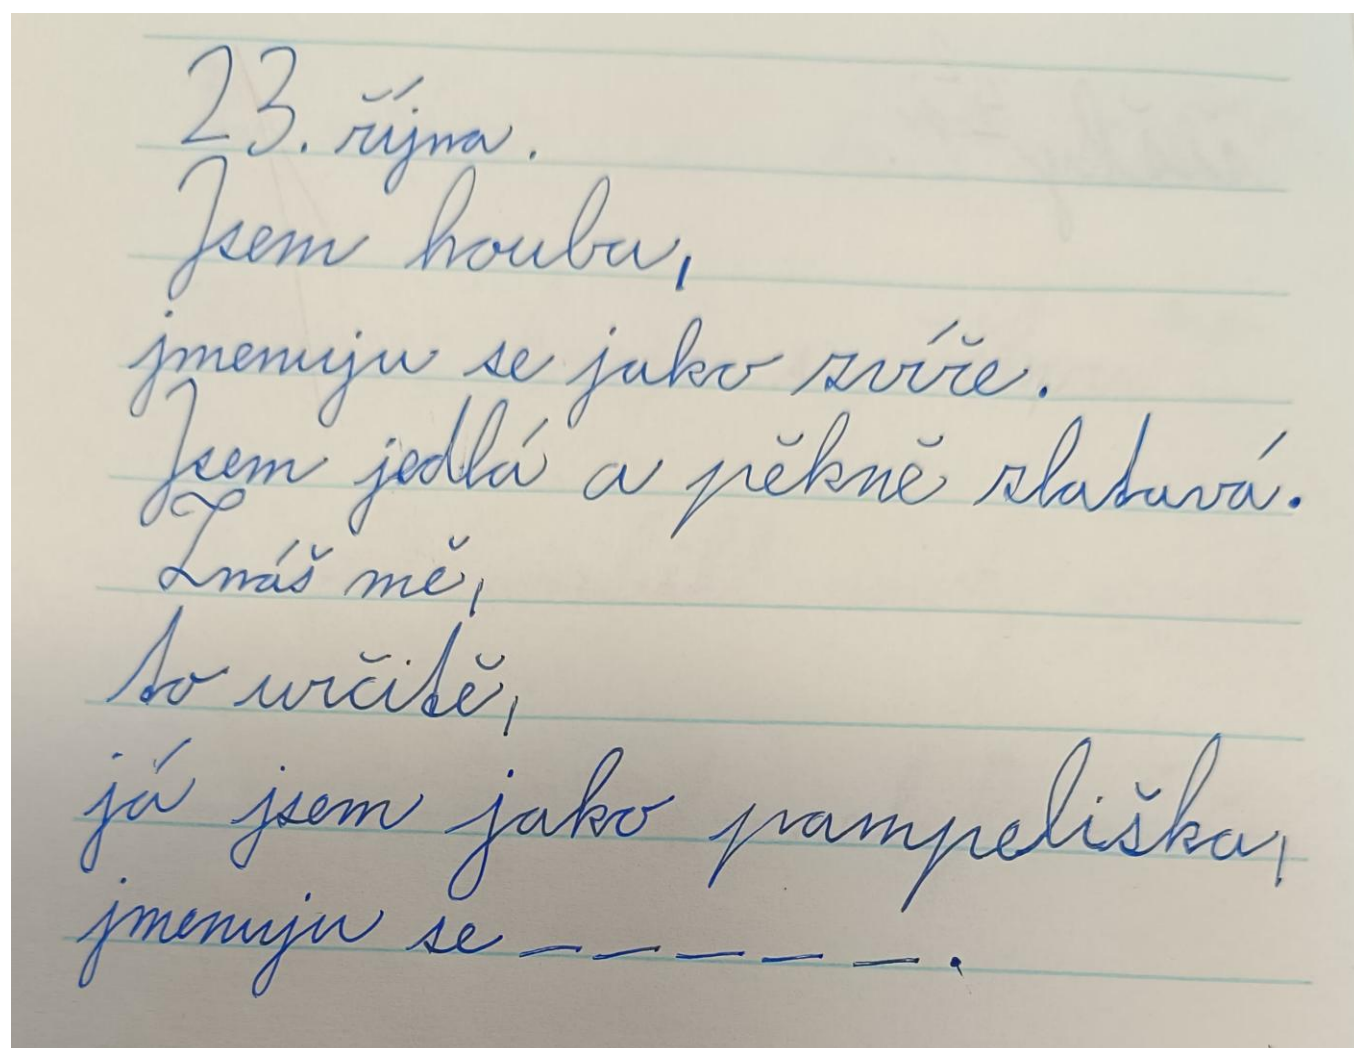 23. října.
Jsem houba,
jmenuju se jako zvíře.
Jsem jedlá a pěkně zlatavá.
Znáš mě,
to určitě,
já jsem jako pampeliška,
jmenuju se _ _ _ _ _.